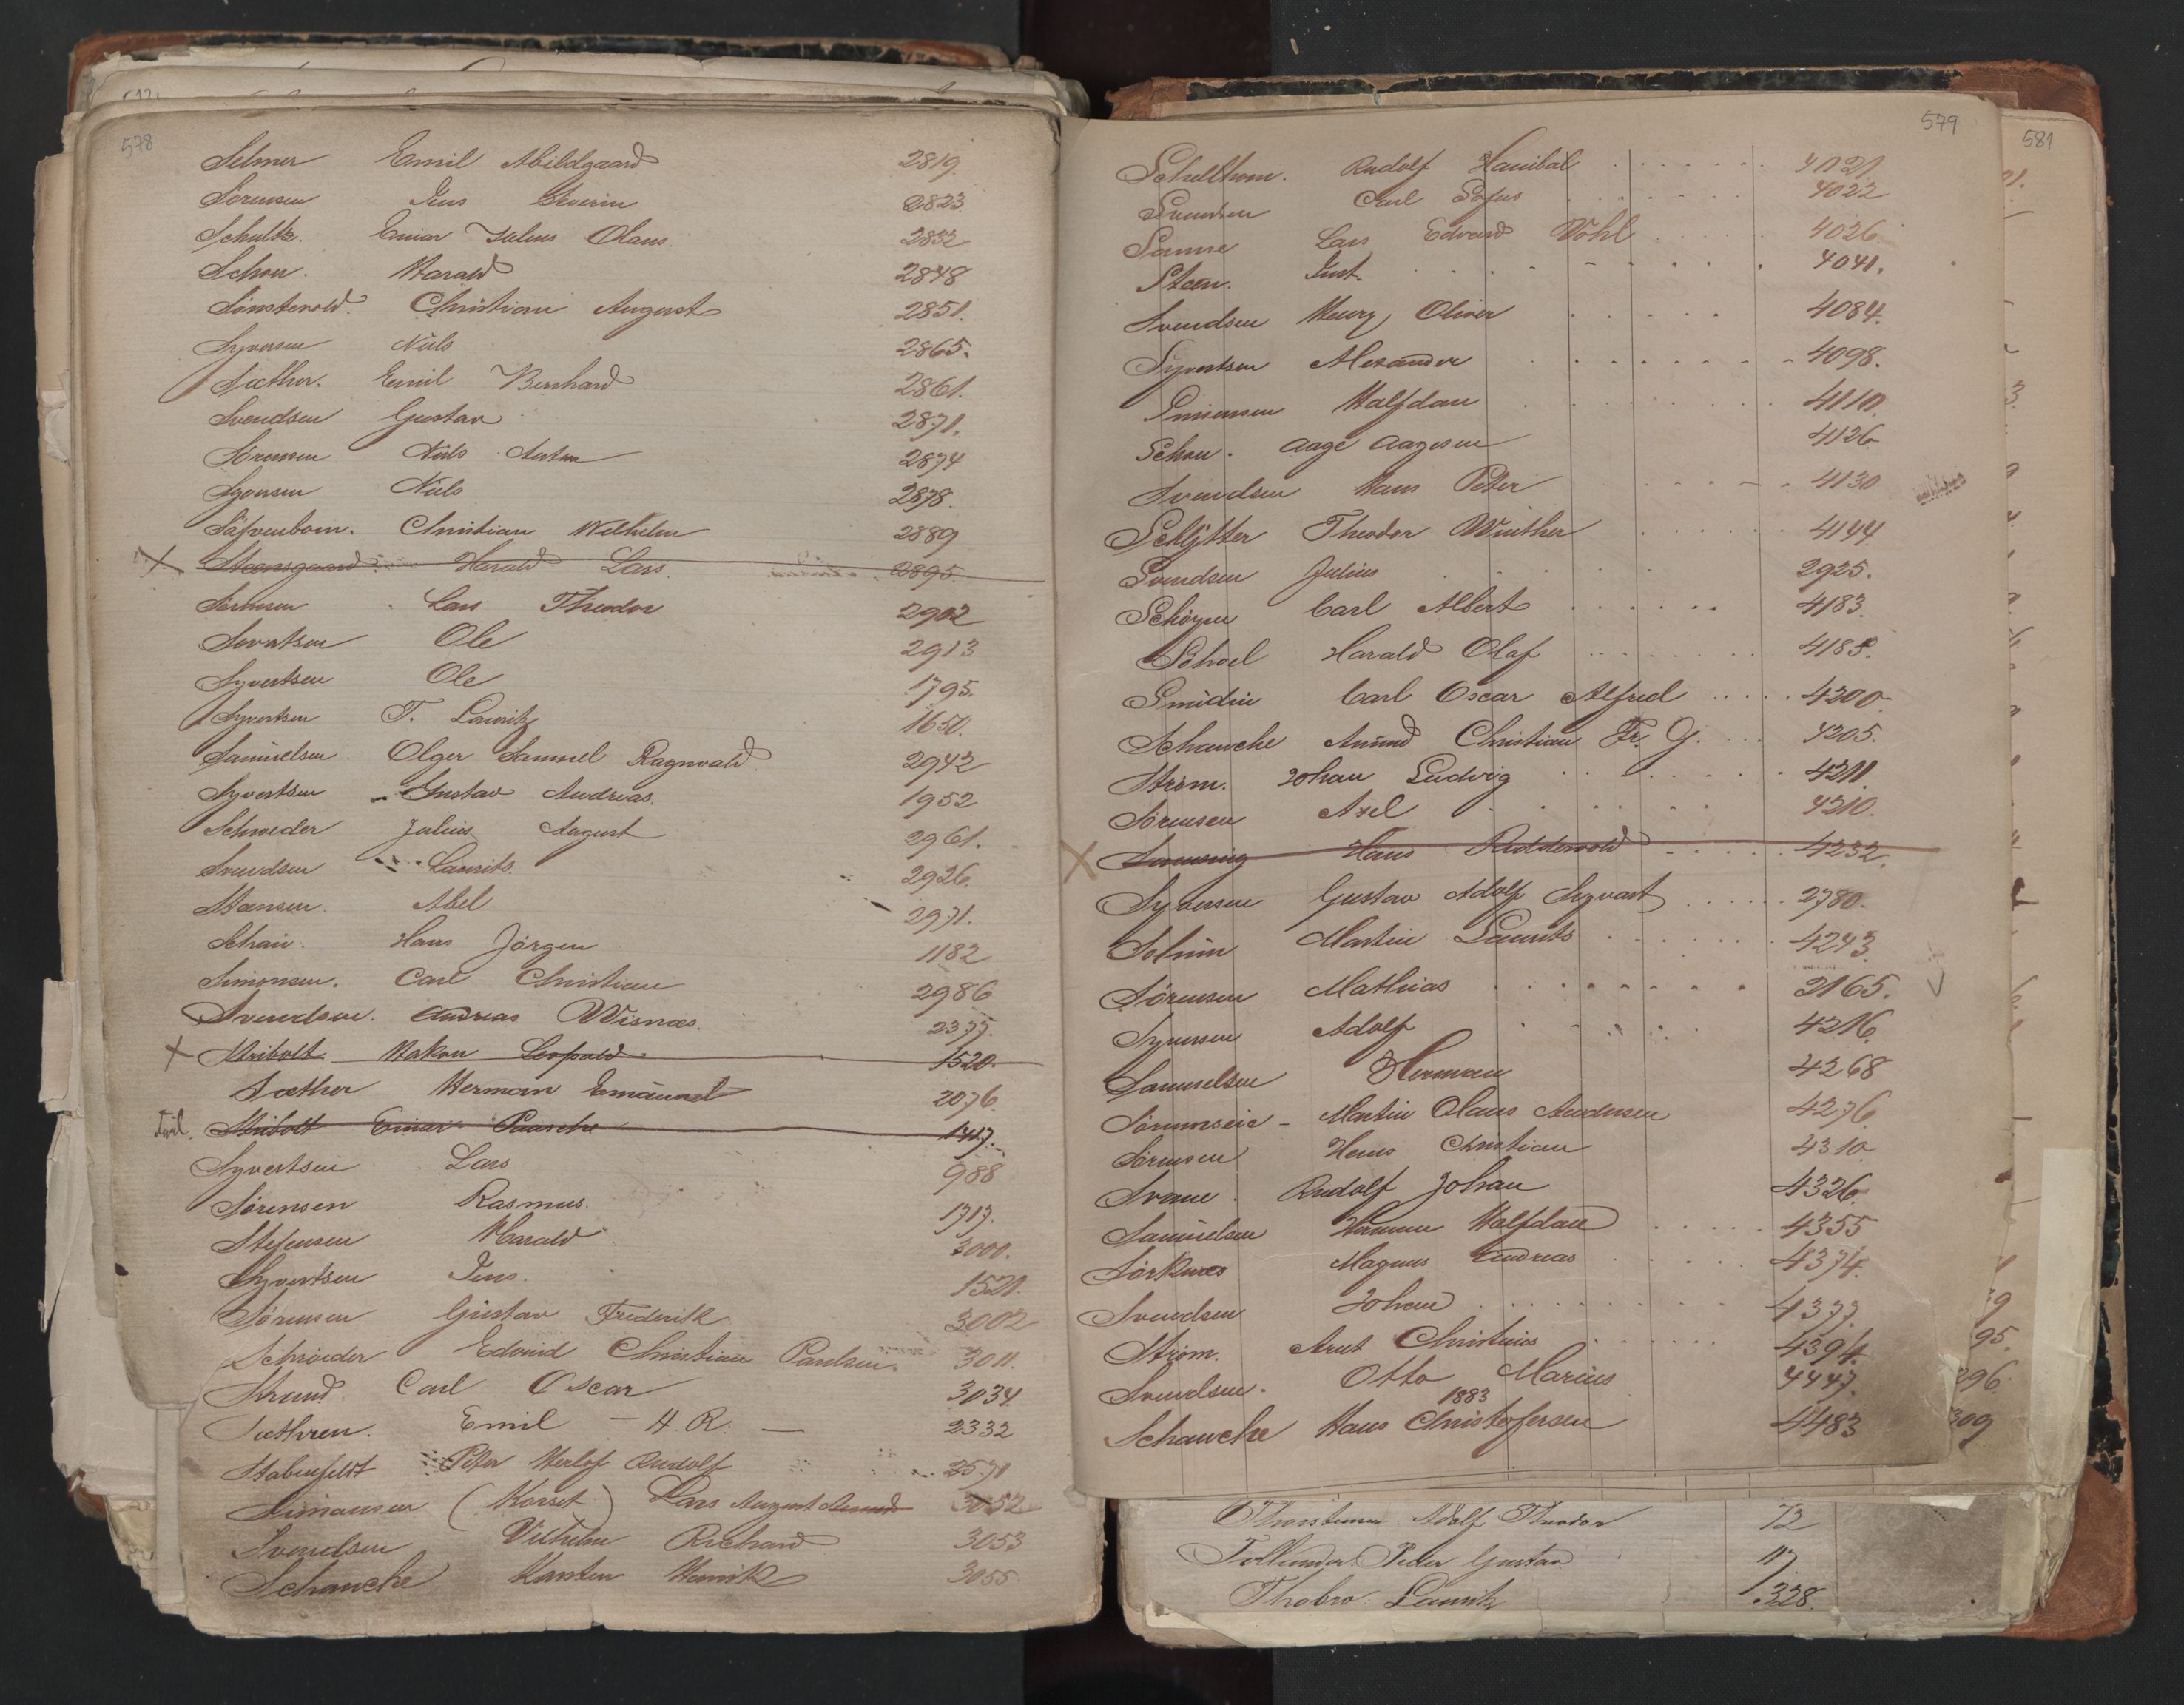 578
Selmer Emil Abildgaard 2819.
Sörensen Jens Severin 2823.
Schultz. Einar Julius Olaus. 2832
Schou. Harald 2848
Sönstevold. Christian August 2851.
Syversen Nils 2865.
Sæther. Emil Bernhard 2861.
Svendsen Gustav 2871.
Sörensen Nils Anton 2874
Syversen Nils 2878.
Säfvenbom. Christian Wilhelm 2889
Steensgaard. Harald Lars. 2895.
Sörensen Lars Theodor 2902
Sivertsen Ole 2913
Syvertsen Ole 1795.
Syvertsen T. Lauritz 1650.
Samuelsen. Olger Samuel Ragnvald. 2942
Syvertsen Gustav Andreas. 1952
Schrøder Julius August 2961.
Svendsen Laurits. 2926.
Steensen. Abel 2971.
Schair. Hans Jörgen 1182
Simonsen. Carl Christian 2986
Svendsen. Andreas Wisnæs. 2377.
Stribolt Hakon Leopold 1520.
Sæther Herman Emanuel 2076.
Stribolt Einar Paasche 1417.
Syvertsen Lars 988
Sørensen Rasmus. 1717.
Stefensen Harald 3000.
Syvertsen Jens. 1521.
Sørensen Gustav Frederik 3002
Schrøeder Edvard Christian Paulsen. 3011.
Strand. Carl Oscar 3034.
Sæthren. Emil — H. R. — 2332
Stabenfeldt Peter Herlof Rudolf 2571
Simansen (Korset) Lars August 3052
Svendsen Vilhelm Richard 3053
Schanche Karsten Henrik 3055
579
Schulthom. Rudolf Hanibal 4021.
Svendsen Carl Sofus 4022
Sanne Lars Edvard Vohl 4026
Steen. Just. 4041.
Svendsen Henry Oliver 4084.
Syvertsen Alexander 4098.
Simensen Halfdan 4110.
Schou. Aage Aagesen 4126
Svendsen Hans Peter 4130
Schlÿtter Theodor Winther 4144
Svendsen Julius 2925.
Schöyen Carl Albert 4183.
Schoel Harald Olaf 4185.
Smidin Carl Oscar Alfred 4200
Schanche Amund Christian Fr. G. 4205.
Strøm. Johan Ludvig 4211.
Sörensen Axel 4210.
Hans Reddervold 4232.
Syversen Gustav Adolf Syvart 2780.
Solum Martin Laurits 4243.
Sørensen Mathias 2165.
Syversen Adolf 4216.
Samuelsen Herman 4268
Martin Olaus Andersen 4276
Sörensen Hans Christian 4310
Svane. Rudolf Johan 4326.
Samuelsen Herman Halfdan 4355
Sörknes Magnus Andreas 4374.
Svendsen Johan 4377.
Strøm. Arnt Christinius 4394.
Svendsen. Otto Marius 4447.
1883
Schanche Hans Christofersen 4483
581
Thorstensen Adolf Theodor 72
Peder Gustav 117
Thobro. Lauritz 328.